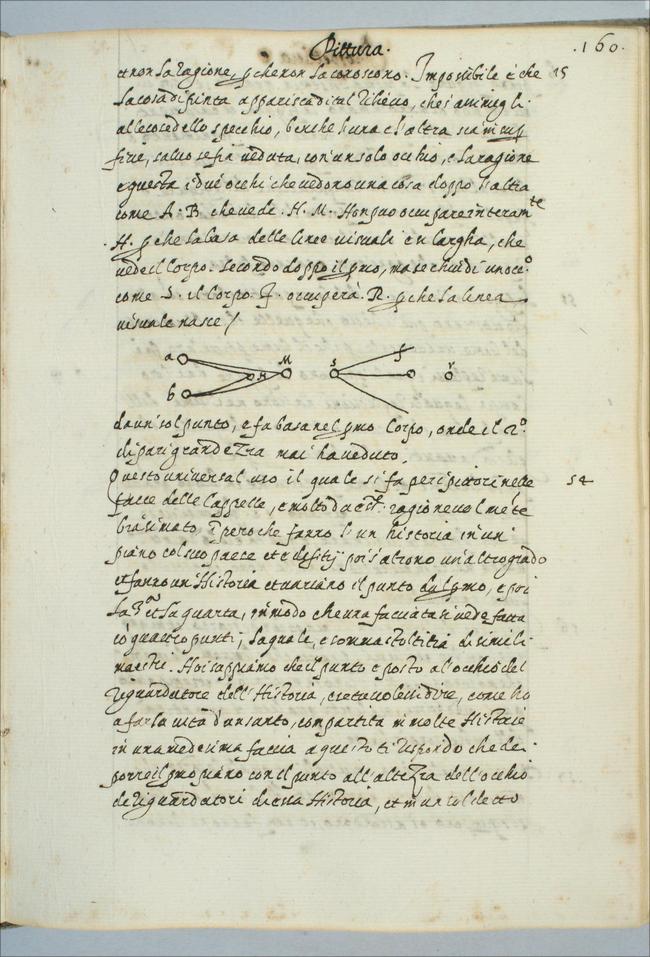 Pittura. .160.
et non la ragione, p che non la conoscono. Impossibile è che 15
la cosa dipinta apparisca di tal rilievo, che s'assimigli
alle cose dello specchio, benche l'una e l'altra sia in sup
ficie, salvo se fia veduta, con un solo occhio, e la ragione
e questa i dui occhi che vedono una cosa doppo l'altra
come A. B che vede. H. M. H non puo occupare interamte
.H. p che la basa delle linee visuali è si largha, che
vede il corpo. secondo doppo il pmo, ma se chiudi un occo
come S. il corpo. F. occuperà. R. p che la linea
visuale nasce/
a M s f r
H
b
da un' sol punto, e fa basa nel pmo corpo, onde il 2o
di pari grandezza mai ha veduto.
Questo universal uso il quale si fa per i pittori nelle 54
facce delle Cappelle, e molto da ragionevolmete
biasimato, perche fanno l'un historia in un
piano col suo paese et edifitij poi s'alzono un'altro grado
et fanno un' Historia et variano il punto dal pmo, e poi
la 3a et la quarta, in modo che una facciata si vede fatta
co quattro punti, la quale, e somma stoltitia di simili
maestri. Noi sappiamo che il punto e posto al occhio del
riguardatore dell' Historia, e se tu volevi dire, come ho
a far la vita d'un santo, compartita in molte Historie
in una medesima faccia a questo ti rispondo che de.
porre il pmo piano con il punto all' altezza dell' occhio
de riguardatori di essa Historia, et in sul detto